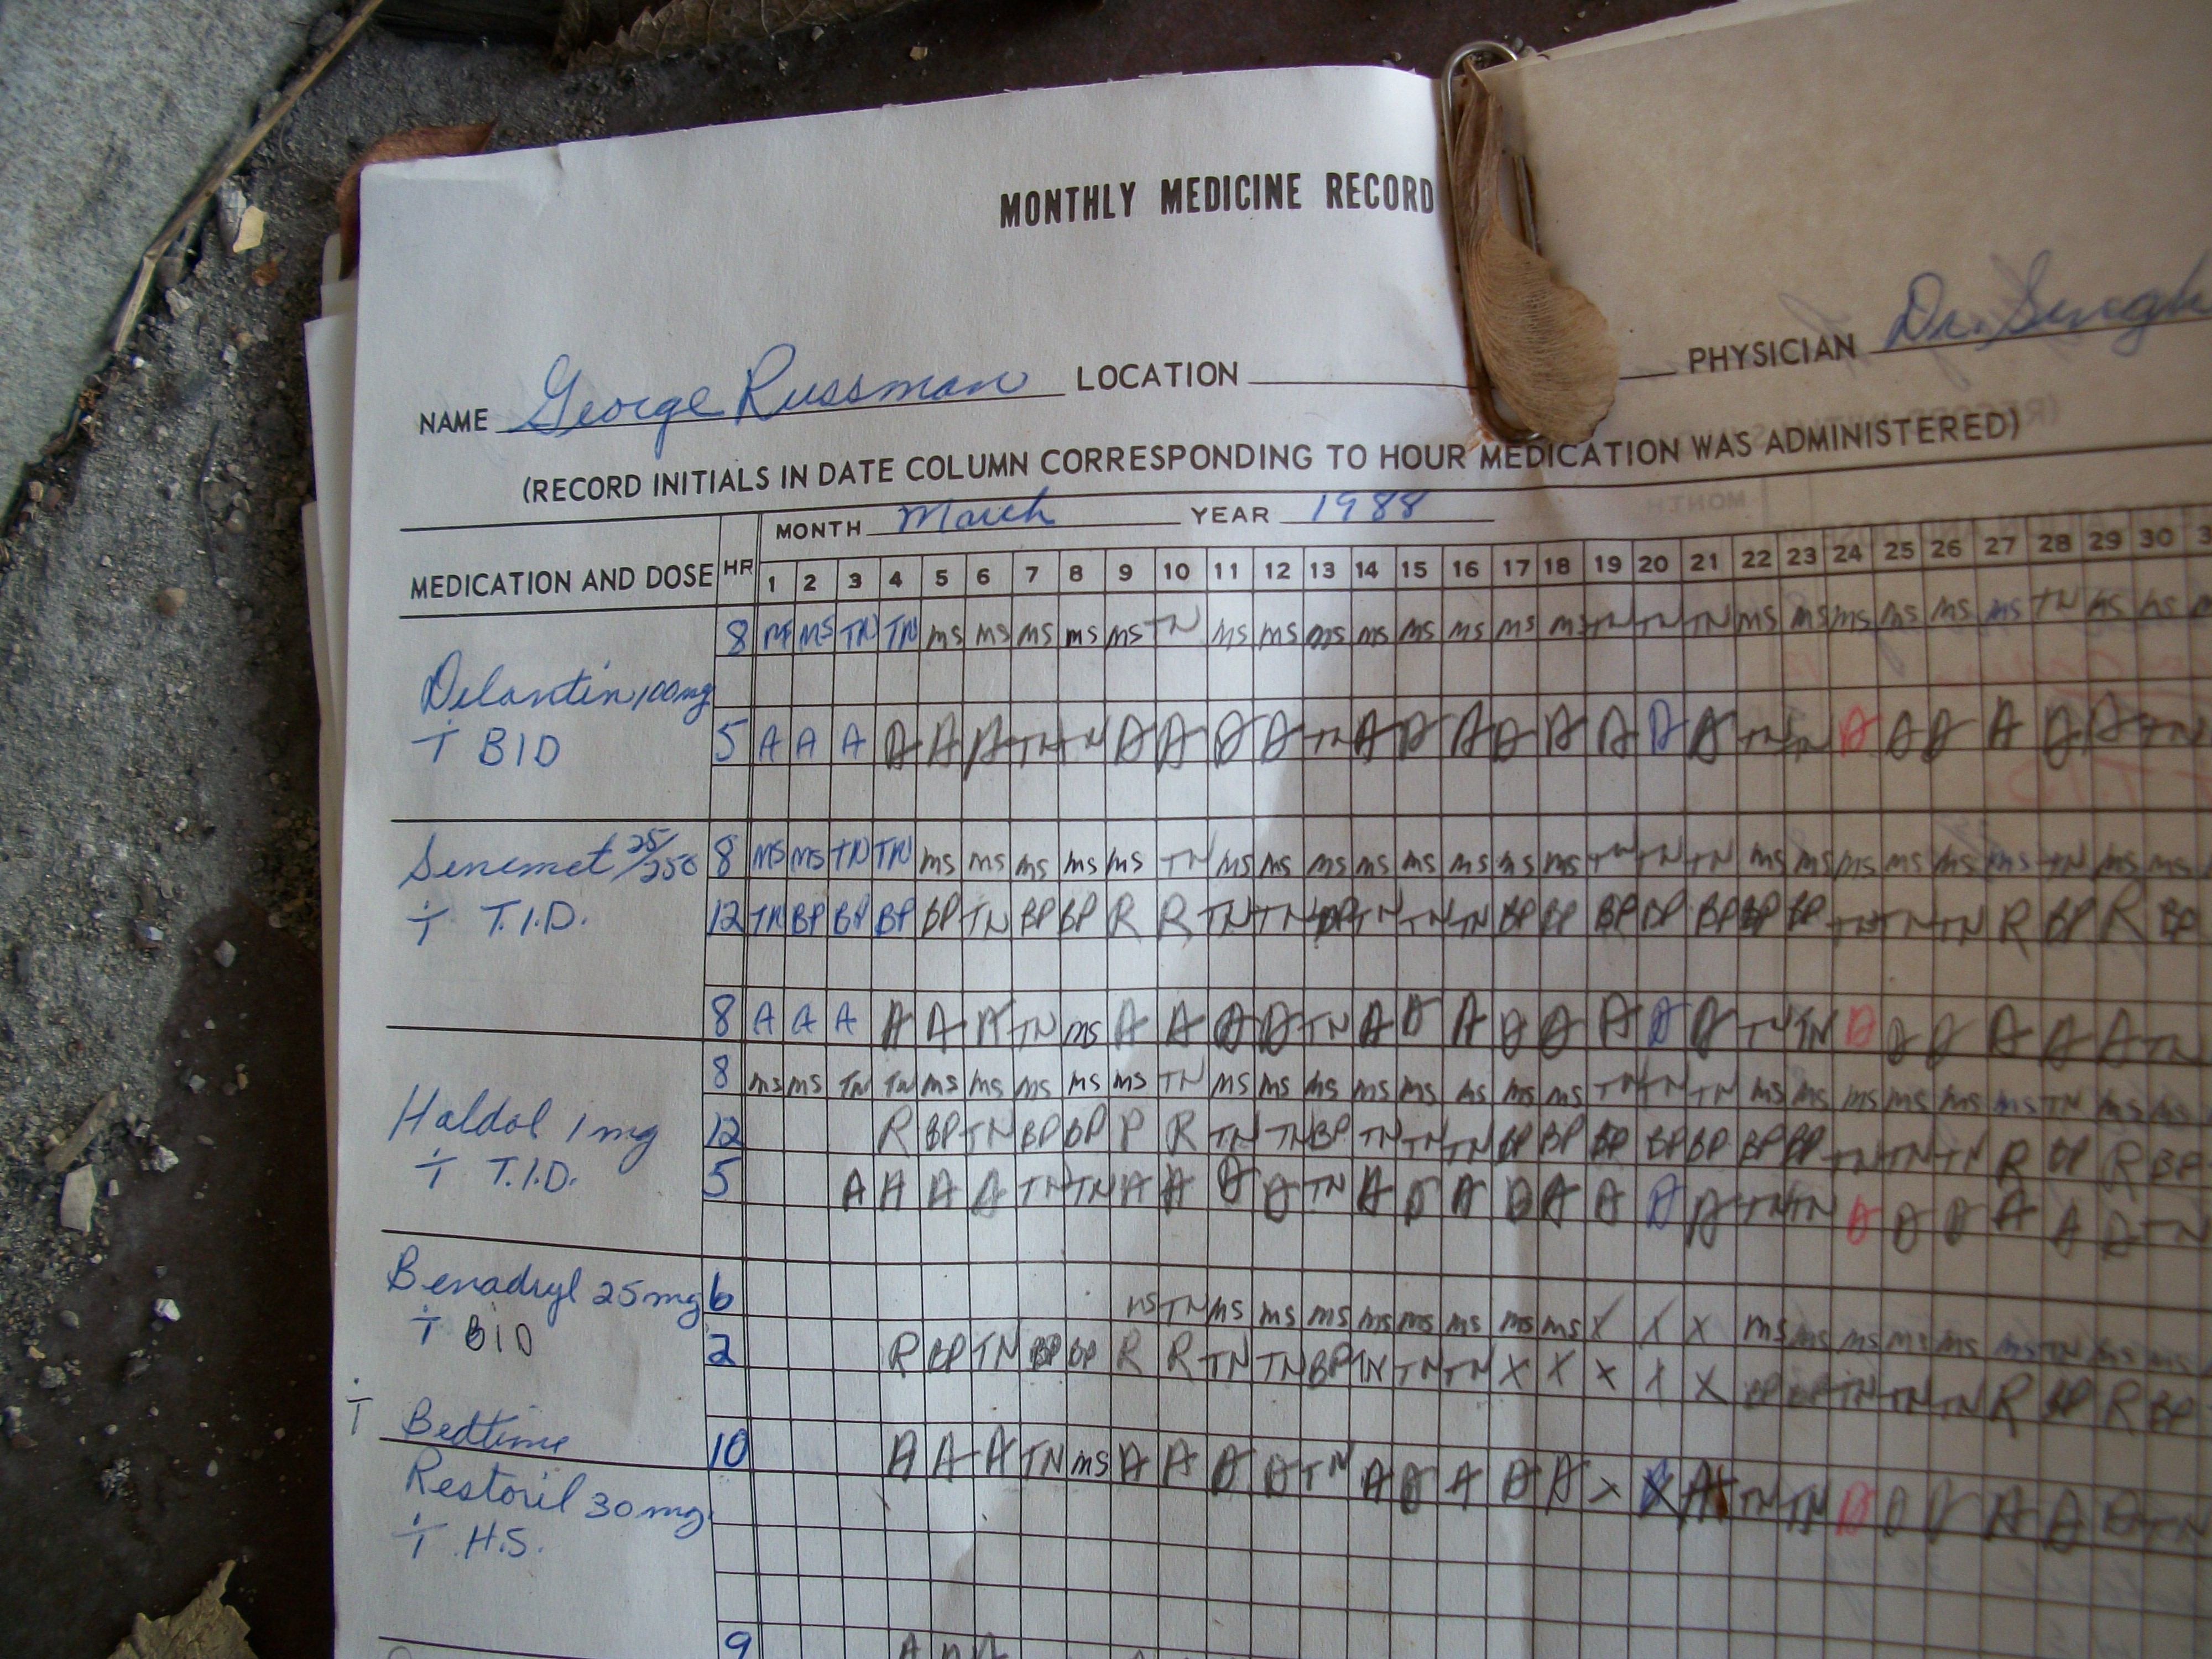 MONTHLY MEDICINE RECORD
NAME George Russman LOCATION PHYSICIAN Dr. Singh
(RECORD INITIALS IN DATE COLUMN CORRESPONDING TO HOUR MEDICATION WAS ADMINISTERED)
MONTH March YEAR 1988
MEDICATION AND DOSE HR 1 2 3 4 5 6 7 8 9 10 11 12 13 14 15 16 17 18 19 20 21 22 23 24 25 26 27 28 29 30
8 MS TN TN MS MS MS MS MS TN MS MS MS MS MS MS MS MS TN TN TN MS MS MS MS MS MS TN MS MS
Dilantin 100mg
T BID 5 A A A A A A TN TN A A A A TN A A A A A A A A TN TN A A A A A A TN
Sinemet 25/250 8 MS MS TN TN MS MS MS MS MS TN MS MS MS MS MS MS MS MS TN TN TN MS MS MS MS MS MS TN MS MS
T T.I.D. 12 TN BP BP BP BP TN BP BP R R TN TN BP TN TN TN BP BP BP BP BP BP BP TN TN TN R BP R BP
8 A A A A A A TN MS A A A A TN A A A A A A A A TN TN A A A A A A TN
8 MS MS TN TN MS MS MS MS MS TN MS MS MS MS MS MS MS MS TN TN TN MS MS MS MS MS MS TN MS MS
Haldol 1mg 12 R BP TN BP BP R R TN TN BP TN TN TN BP BP BP BP BP BP BP TN TN TN R BP R BP
T T.I.D. 5 A A A A TN TN A A A A TN A A A A A A A A TN TN A A A A A A TN
Benadryl 25mg 6 MS TN MS MS MS MS MS MS MS MS X X X MS MS MS MS MS MS TN MS MS
T BID 2 R BP TN BP BP R R TN TN BP TN TN TN X X X X X BP BP TN TN TN R BP R BP
T Bedtime 10 A A A TN MS A A A A TN A A A A A X A TN TN A A A A A A TN
Restoril 30mg
T H.S.
9 A A A